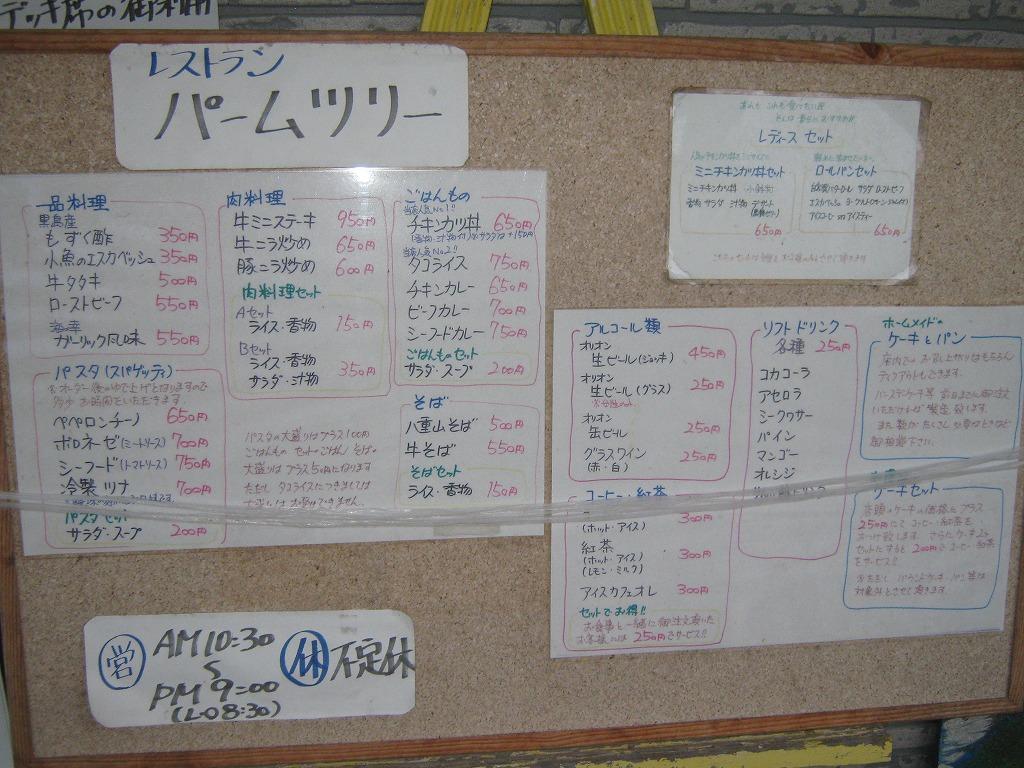 デッキ席の御利用
レストラン
パームツリー
一品料理
黒島産
もずく酢 350円
小魚のエスカベッシュ 350円
牛タタキ 500円
ローストビーフ 550円
ガーリック風味 550円
パスタ(スパゲッティ)
ペペロンチーノ 650円
ボロネーゼ(ミートソース) 700円
シーフード(トマトソース) 750円
冷製ツナ 700円
パスタセット
サラダ・スープ 200円
肉料理
牛ミニステーキ 950円
牛ニラ炒め 650円
豚ニラ炒め 600円
肉料理セット
Aセット
ライス・香物 150円
Bセット
ライス・香物
サラダ・汁物 350円
パスタの大盛りはプラス100円
ごはんもの セットごはん そばの
大盛りは プラス50円になります
ただし タコライスにつきましては
ごはんもの
当店人気No.1!!
チキンカツ丼 650円
当店人気No.2!!
タコライス 750円
チキンカレー 650円
ビーフカレー 700円
シーフードカレー 750円
ごはんものセット
サラダ・スープ 200円
そば
八重山そば 500円
牛そば 550円
そばセット
ライス・香物 150円
レディースセット
ミニチキンカツ丼セット
ミニチキンカツ丼
香物 サラダ 汁物 デザート
650円
ロールパンセット
サラダ ローストビーフ
650円
アルコール類
オリオン
生ビール(ジョッキ) 450円
オリオン
生ビール(グラス) 250円
オリオン
缶ビール 250円
グラスワイン
(赤・白) 250円
コーヒー・紅茶
(ホット・アイス) 300円
紅茶
(ホット・アイス) 300円
(レモン・ミルク)
アイスカフェオレ 300円
セットでお得!!
お食事と一緒に御注文頂いた
お客様には 250円でサービス!!
ソフトドリンク
各種 250円
コカコーラ
アセロラ
シークヮサー
パイン
マンゴー
オレンジ
ホームメイドの
ケーキとパン
店内でのお召し上がりはもちろん
テイクアウトもできます。
ケーキセット
店頭のケーキの価格にプラス
250円にて コーヒー・紅茶を
お付け致します。
営 AM10:30
〜
PM 9:00
(L.O 8:30)
休 不定休